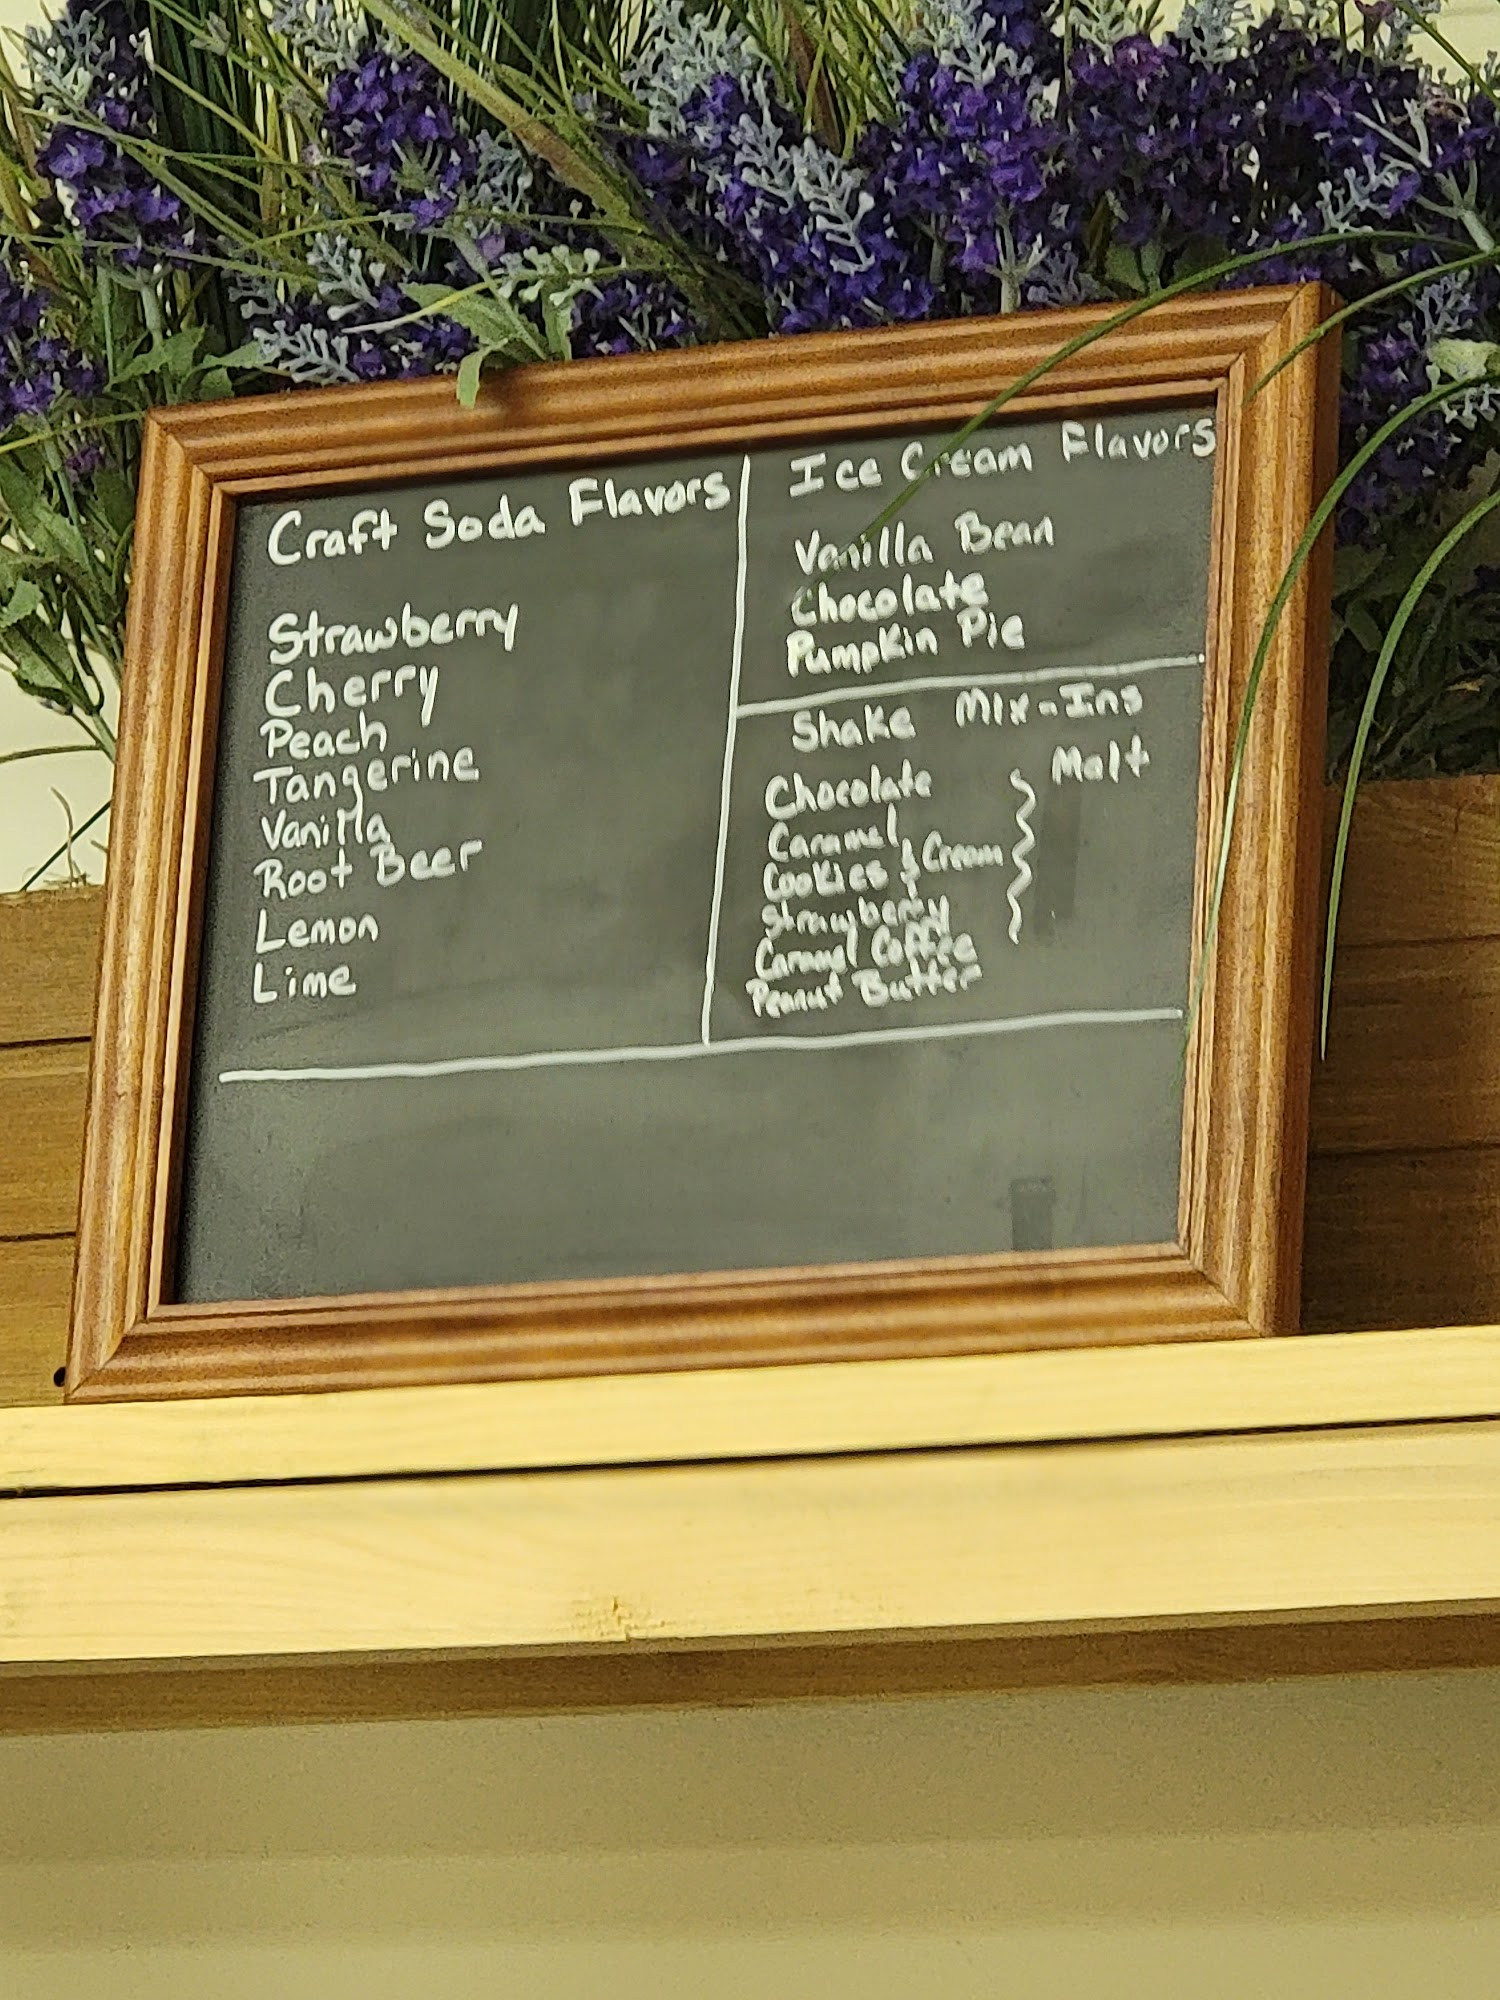 Craft Soda Flavors
Strawberry
Cherry
Peach
Tangerine
Vanilla
Root Beer
Lemon
Lime
Ice Cream Flavors
Vanilla Bean
Chocolate
Pumpkin Pie
Shake Mix-Ins
Chocolate
Caramel
Cookies & Cream
Strawberry
Caramel Coffee
Peanut Butter
Malt